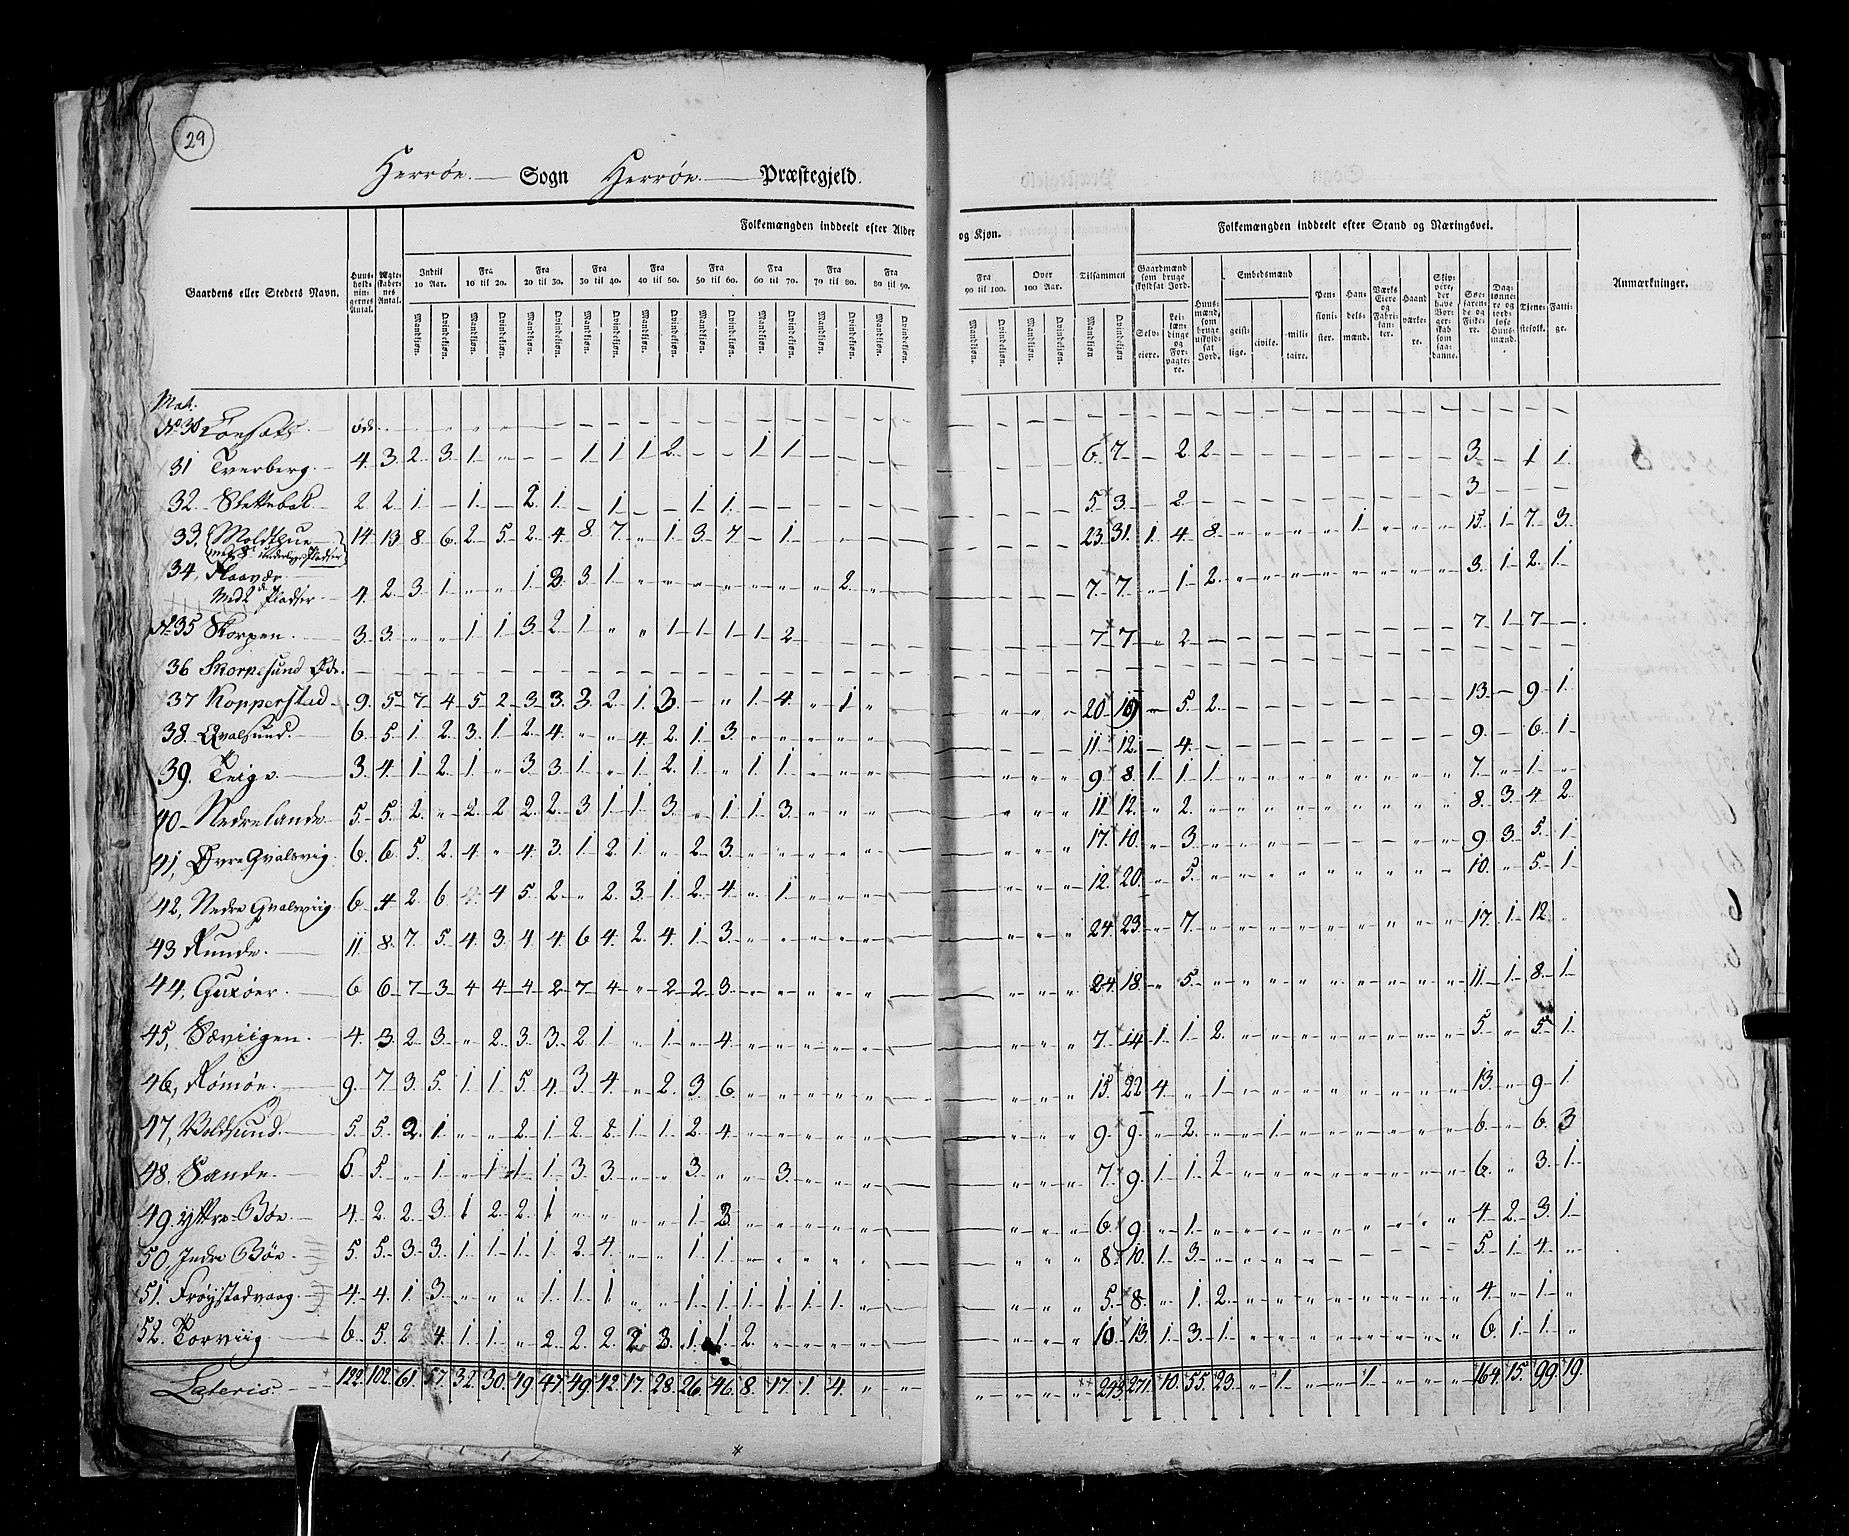 29
Herrøe. Sogn Herrøe. Præstegjeld.
Folkemængden inddeelt efter Alder og Kjøn. Folkemængden inddeelt efter Stand og Næringsvei.
Gaardens eller Stedets Navn. Huus-holdnin-gernes Antal. Ægte-skaber-nes Antal. Indtil 10 Aar. Fra 10 til 20. Fra 20 til 30. Fra 30 til 40. Fra 40 til 50. Fra 50 til 60. Fra 60 til 70. Fra 70 til 80. Fra 80 til 90. Fra 90 til 100. Over 100 Aar. Tilsammen Gaardmænd som bruge skyldsat Jord. Huus-mænd, som bruge uskyld-sat Jord. Embedsmænd Pen-sioni-ster. Han-dels-mænd. Værks Eiere og Fabri-kan-ter. Haand værke-re. Skip-pere, der have Bor-ger-skab som saa-danne. Søe-farende og Fiske-re. Dag-lønne-re og jord-løse Huus-mænd. Tjene-stefolk. Fatti-ge. Anmærkninger.
Mandkjøn. Qvindekjøn. Selv-eiere. Lei-læn-dinge og For-pagte-re. geist-lige. civile. mili-taire.
Mat.
No 30 øde.
31 Tverberg. 4. 3. 2. 3. 1. 1 1 1 2. 1 1 6. 7. 2 2 3. 1 1.
32. 2 2 1 1 2. 1 1 1 1 5 3 2 3
33. Moldtue 14 13 8 6. 2 5 2 4 8 7 1 3 7 1 23 31. 1. 4 8 1 15 1. 7. 3.
34. Flaavær 4. 2. 3 1 1 3. 3 1 2. 7. 7. 1 2. 3 1 2 1
No 35 Skorpen. 3 3 1 1 3 2 1 1 1 1 1 2 7 7 2 7 1 7
36 Skorpesund Øde.
37 Kopperstad 9. 5 7 4 5 2 3 3. 3. 2 1 3. 1. 4. 1 20 19 5 2. 13. 9 1
38. Qvalsund. 6. 5 1 2. 3. 1 2. 4. 4. 2. 1. 3. 11 12. 4. 9. 6. 1
39. Teige 3. 4. 1. 2. 1. 3. 3. 1 1. 2. 1. 1. 1. 9. 8. 1. 1. 1. 7. 1.
40 Nedrelande 5. 5. 2. 2. 2 2. 2. 3 1 1. 3. 1. 1. 3. 11. 12. 2. 8. 3. 4 2
41, Øvre Qvalsvig. 6. 6 5. 2. 4 4. 3. 1. 2. 1. 2. 3. 17. 10. 3. 9 3 5. 1
42, Nedre Qvalsviig 6. 4 2. 6 4 5. 2 2 3. 1. 2. 4. 1 12. 20. 5. 10. 5. 1
43 Runde. 11 8. 7. 5. 4 3. 4 4 6 4. 2. 4. 1. 3. 24. 23. 7. 17. 1 12.
44, Guxøer. 6 6. 7. 3 4 4 4 2 7 4 2 2. 3. 24. 18. 5. 11. 1. 8. 1
45, Sæviigen. 4. 3 2. 3. 2. 3. 3. 2. 1 1. 4. 7. 14 1. 1. 2. 5. 5. 1
46, Rømøe. 9. 7 3. 5. 1 1 5. 4. 3. 4. 2. 3. 6. 15. 22 4. 1. 13. 9. 1.
47, Voldsund. 5. 5. 2. 1. 2. 1. 2. 2. 1 1 2. 4 9. 9. 2. 1 6. 6. 3
48, Sande. 6 5. 1. 1 1 1 3. 3. 3. 3. 7. 9. 1. 1. 2 6. 3. 1
49. Yttre Bøe. 4. 2 2. 3. 1 2. 2 1 1. 3. 6. 9. 1. 4 2. 3. 1
50, Indre Bøe 5. 5. 3. 3. 1 1. 1. 1. 2. 4. 1. 1. 8 10. 1. 3. 5. 1 4
51. Frøystadvaag. 4. 4. 1. 3. 1. 1. 1. 1. 1. 1. 1. 1. 1. 5. 8. 1. 2. 4. 1
52. Torviig 6. 5. 2 4 1. 1. 2. 2. 2. 2. 3. 1. 1. 2. 10. 13. 1. 3. 1. 6. 1. 1.
Lateris. 122. 102. 61. 57. 32. 30. 49. 47. 49. 42. 17. 28. 26. 46. 8. 17. 1. 4. 243. 271. 10. 55. 23. 1 1. 164. 15. 99. 19.